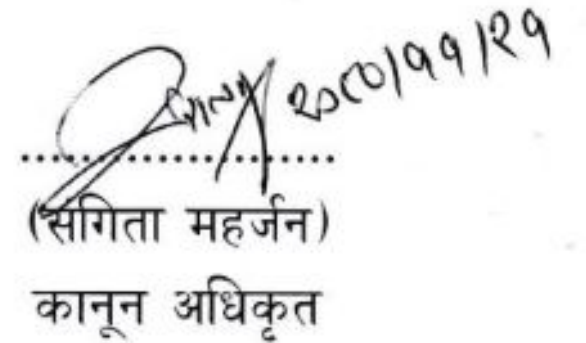 २०८०/११/२१
....................................
(संगिता महर्जन)
कानून अधिकृत